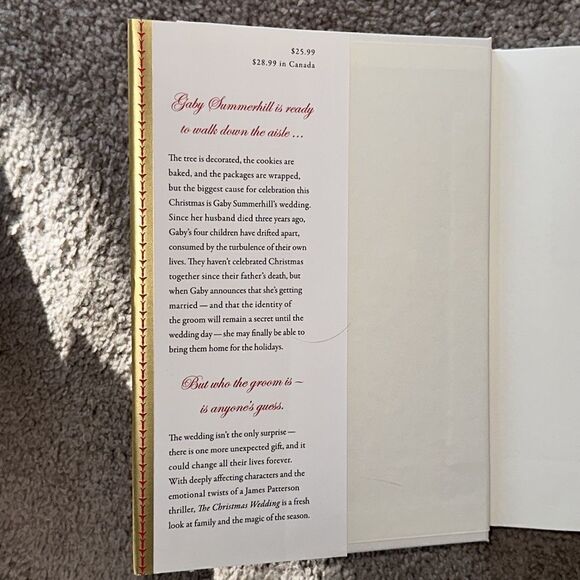 $25.99
$28.99 in Canada
Gaby Summerhill is ready
to walk down the aisle ...
The tree is decorated, the cookies are
baked, and the packages are wrapped,
but the biggest cause for celebration this
Christmas is Gaby Summerhill's wedding.
Since her husband died three years ago,
Gaby's four children have drifted apart,
consumed by the turbulence of their own
lives. They haven't celebrated Christmas
together since their father's death, but
when Gaby announces that she's getting
married — and that the identity of
the groom will remain a secret until the
wedding day — she may finally be able to
bring them home for the holidays.
But who the groom is ~
is anyone's guess.
The wedding isn't the only surprise —
there is one more unexpected gift, and it
could change all their lives forever.
With deeply affecting characters and the
emotional twists of a James Patterson
thriller, The Christmas Wedding is a fresh
look at family and the magic of the season.